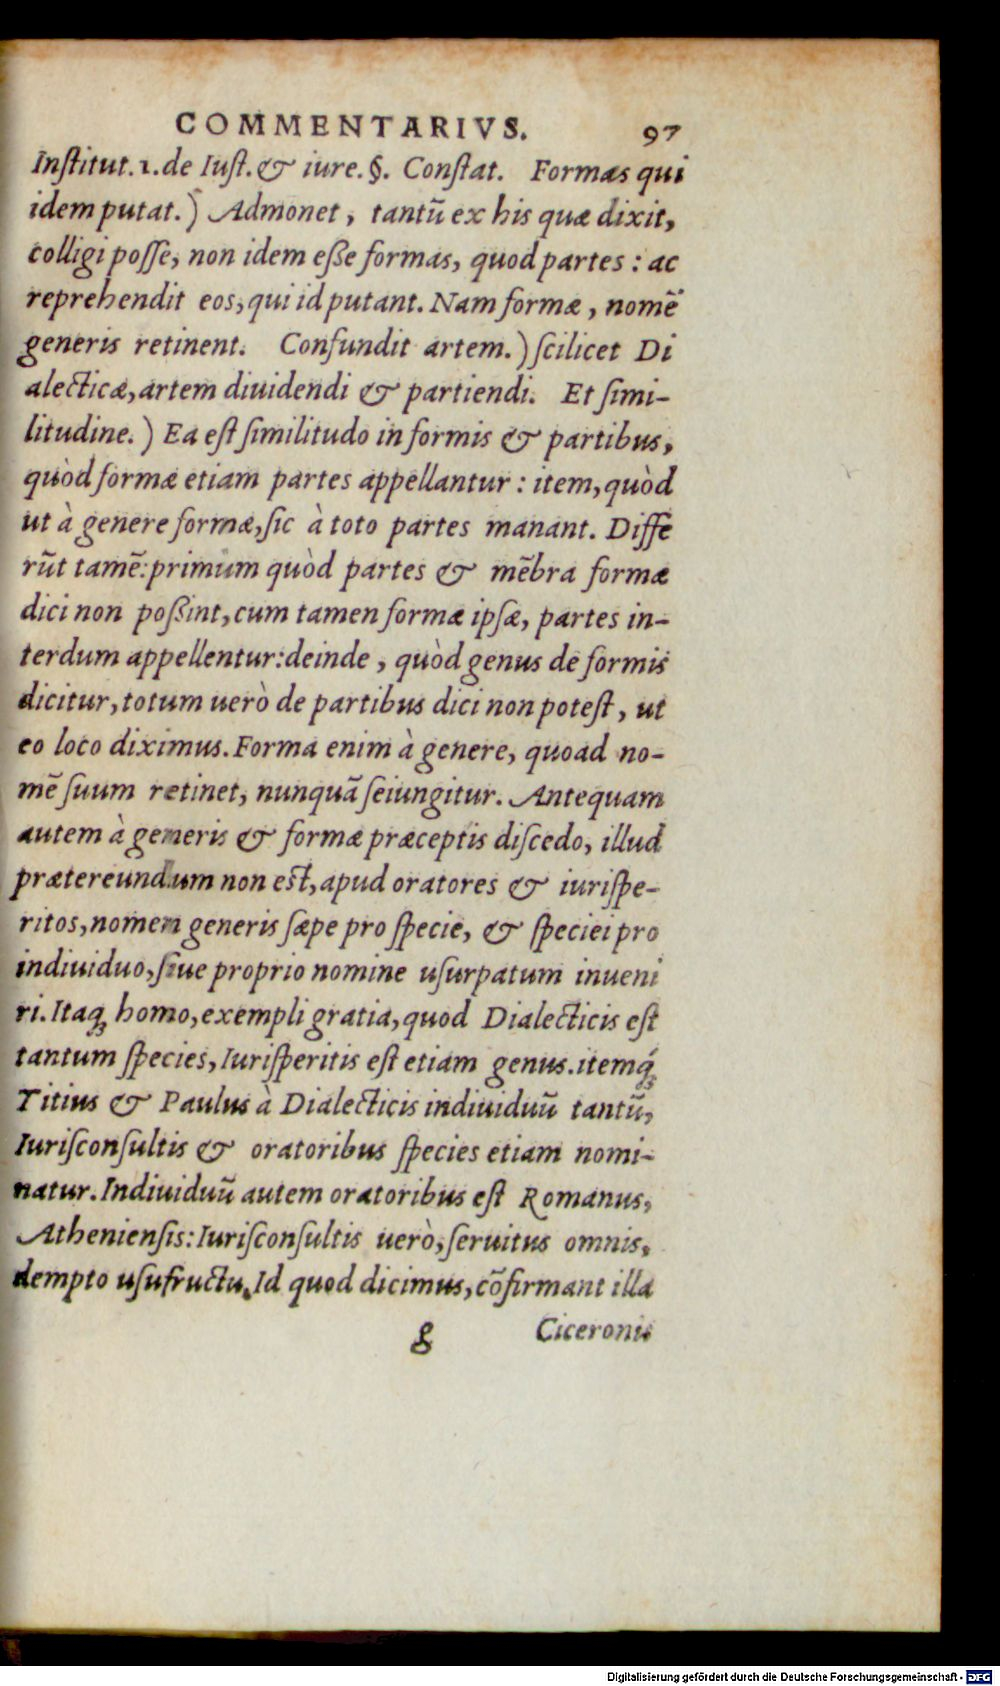 COMMENTARIVS. 97
Inſtitut. 1. de Iuſt. & iure. §. Conſtat. Formas qui
idem putat.) Admonet, tantũ ex his quæ dixit,
colligi poſſe, non idem eſſe formas, quod partes: ac
reprehendit eos, qui id putant. Nam formæ, nomẽ
generis retinent. Confundit artem.) ſcilicet Di
alecticæ, artem diuidendi & partiendi. Et ſimi-
litudine.) Ea eſt ſimilitudo in formis & partibus,
quòd formæ etiam partes appellantur: item, quòd
ut à genere formæ, ſic à toto partes manant. Diffe
rũt tamẽ: primùm quòd partes & mẽbra formæ
dici non poßint, cum tamen formæ ipſæ, partes in-
terdum appellentur: deinde, quòd genus de formis
dicitur, totum uerò de partibus dici non poteſt, ut
eo loco diximus. Forma enim à genere, quoad no-
mẽ ſuum retinet, nunquã ſeiungitur. Antequam
autem à generis & formæ præceptis diſcedo, illud
prætereundum non eſt, apud oratores & iuriſpe-
ritos, nomen generis ſæpe pro ſpecie, & ſpeciei pro
indiuiduo, ſiue proprio nomine uſurpatum inueni
ri. Itaq; homo, exempli gratia, quod Dialecticis eſt
tantum ſpecies, Iuriſperitis eſt etiam genus. itemq́;
Titius & Paulus à Dialecticis indiuiduũ tantũ,
Iuriſconſultis & oratoribus ſpecies etiam nomi-
natur. Indiuiduũ autem oratoribus eſt Romanus,
Athenienſis: Iuriſconſultis uerò, ſeruitus omnis,
dempto uſufructu. Id quod dicimus, cõfirmant illa
g Ciceronis
Digitalisierung gefördert durch die Deutsche Forschungsgemeinschaft - DFG